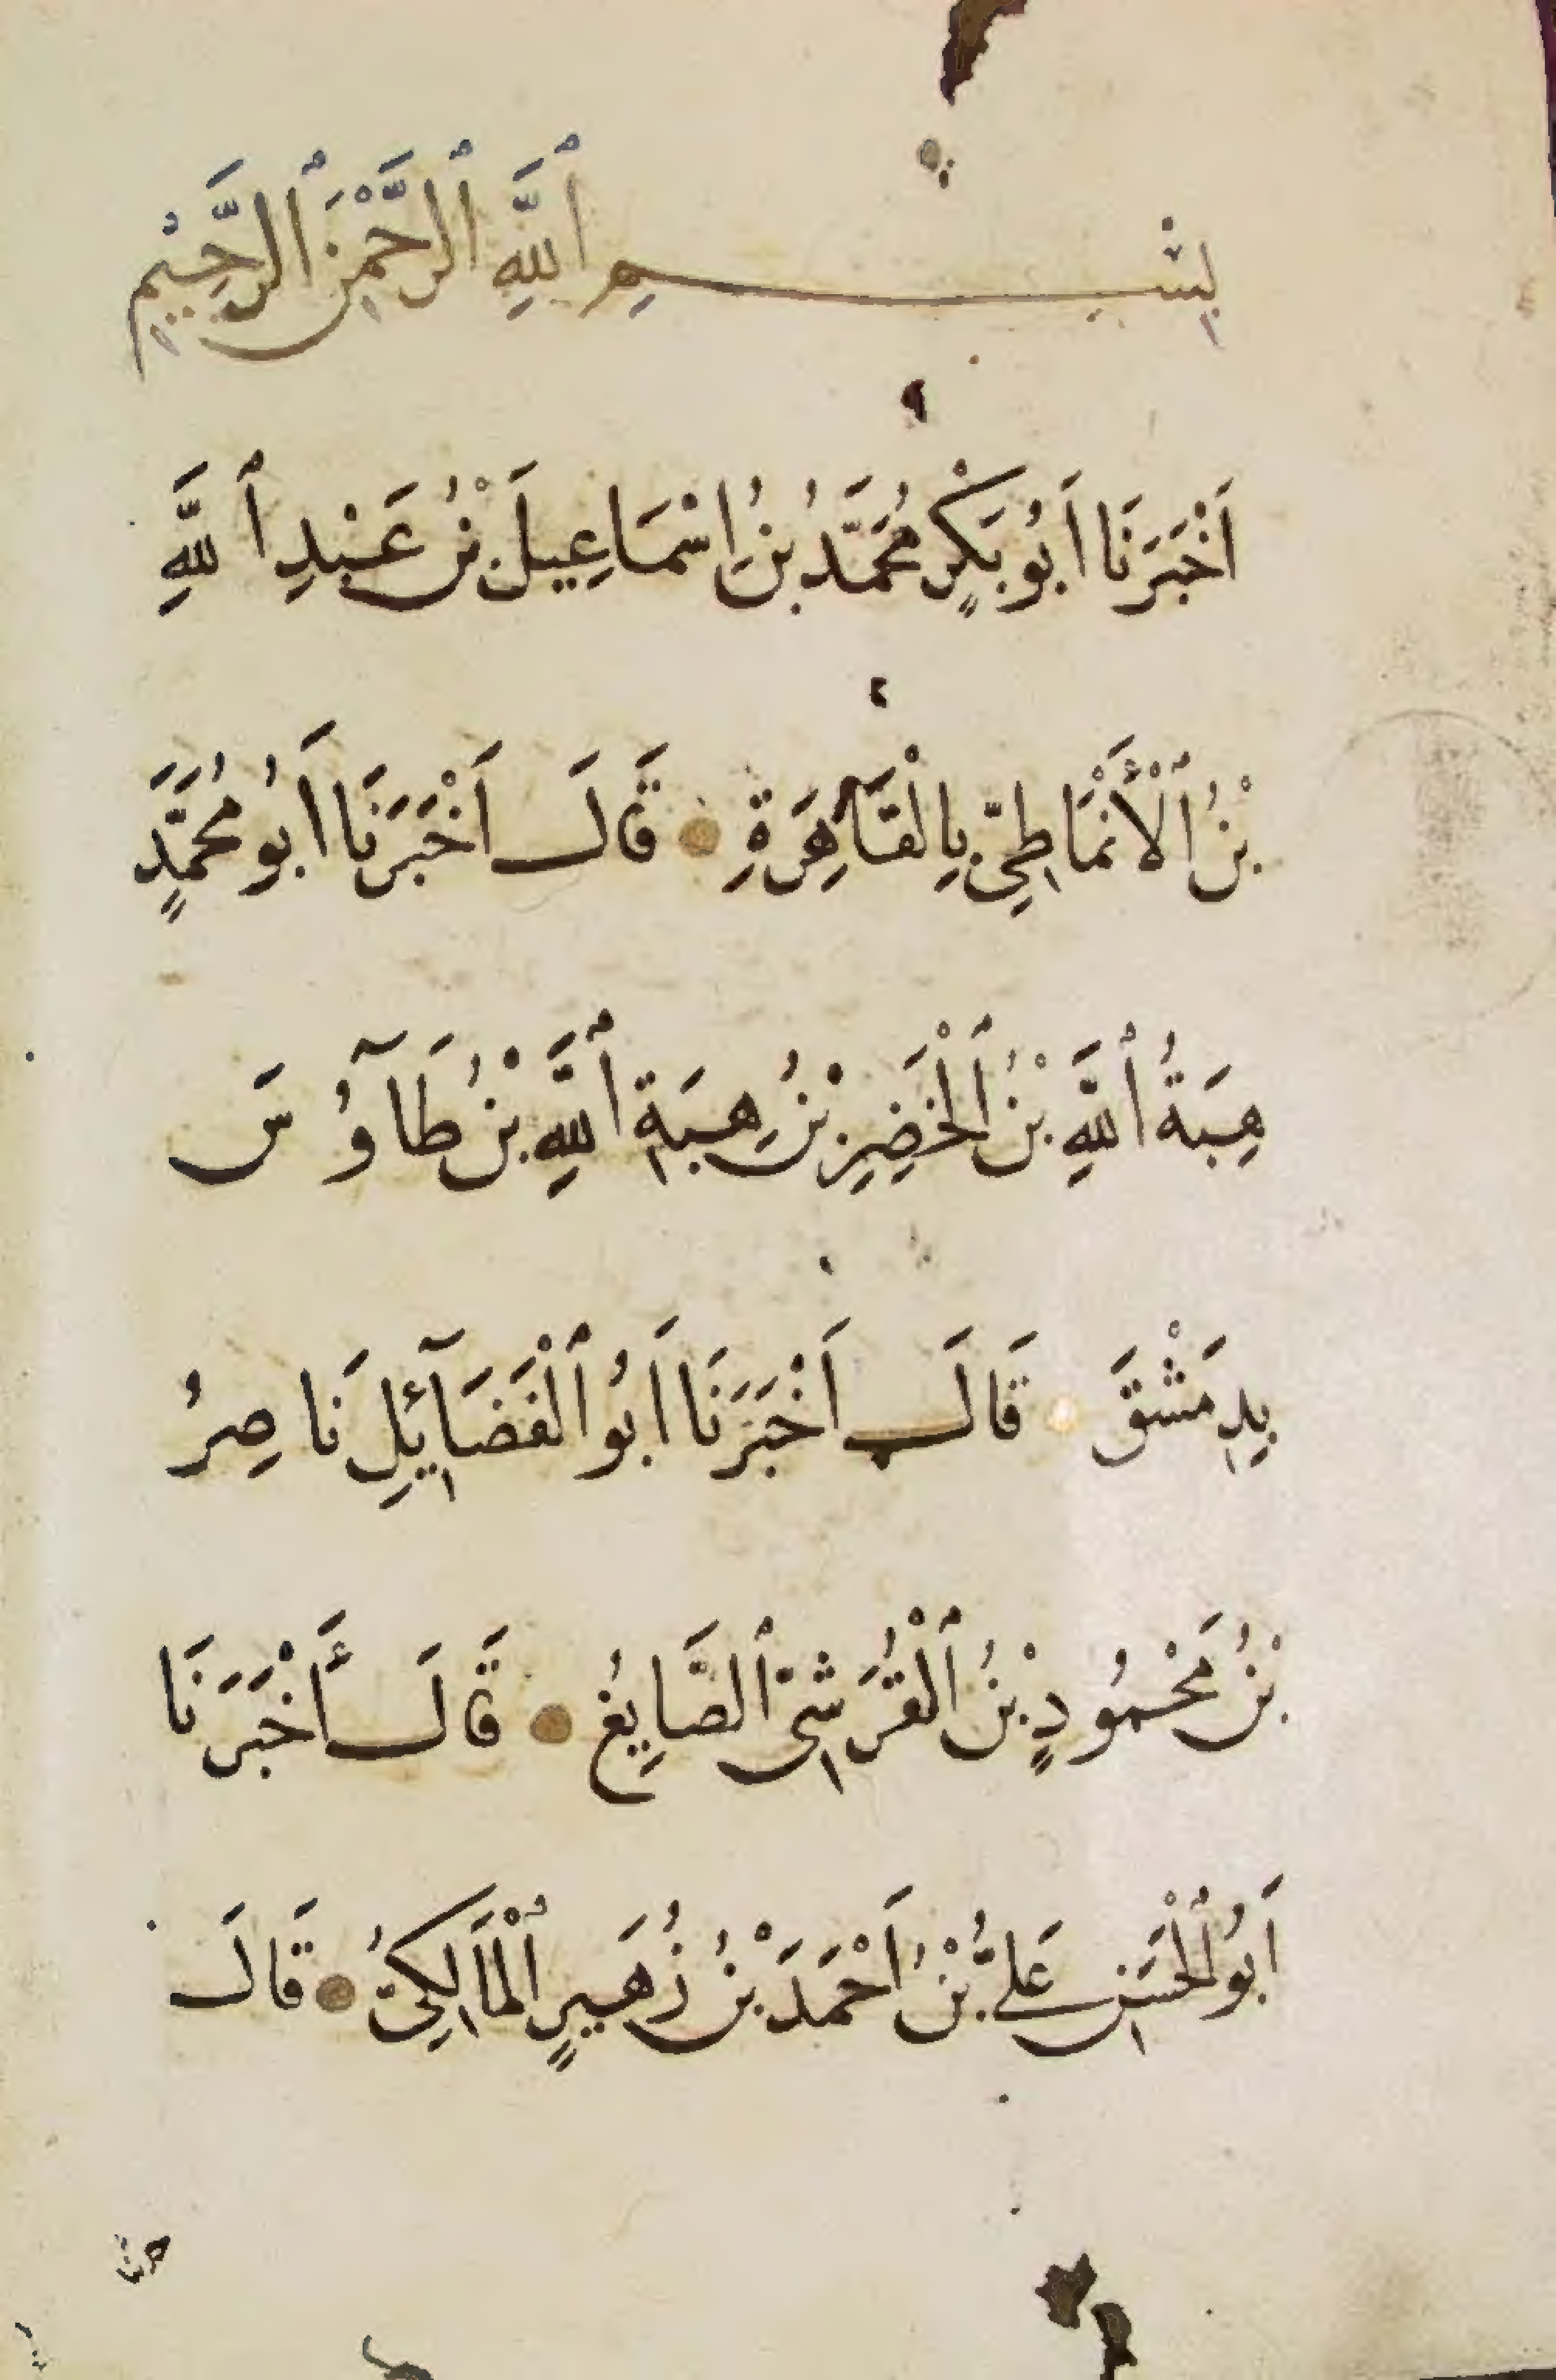 بِسْمِ ٱللَّهِ ٱلرَّحْمَنِ ٱلرَّحِيْمِ
اَخْبَرَنَا اَبُو بَكْرٍ مُحَمَّدُ بْنُ اِسْمَاعِيلَ بْنُ عَبْدِ ٱللَّهِ
بْنُ ٱلْأَنْمَاطِيِّ بِالْقَاهِرَةِ قَالَ اَخْبَرَنَا اَبُو مُحَمَّدٍ
هِبَةُ ٱللَّهِ بْنُ ٱلْخَضِرِ بْنُ هِبَةِ ٱللَّهِ بْنُ طَآوُسَ
بِدِمَشْقَ قَالَ اَخْبَرَنَا اَبُو ٱلْفَضَآئِلِ نَاصِرُ
بْنُ مَحْمُودٍ بْنُ ٱلْقُرَشِىِّ ٱلصَّايِغُ قَالَ أَخْبَرَنَا
اَبُو ٱلْحَسَنِ عَلِىُّ بْنُ اَحْمَدَ بْنُ زُهَيرٍ ٱلْمَالِكِىُّ قَالَ